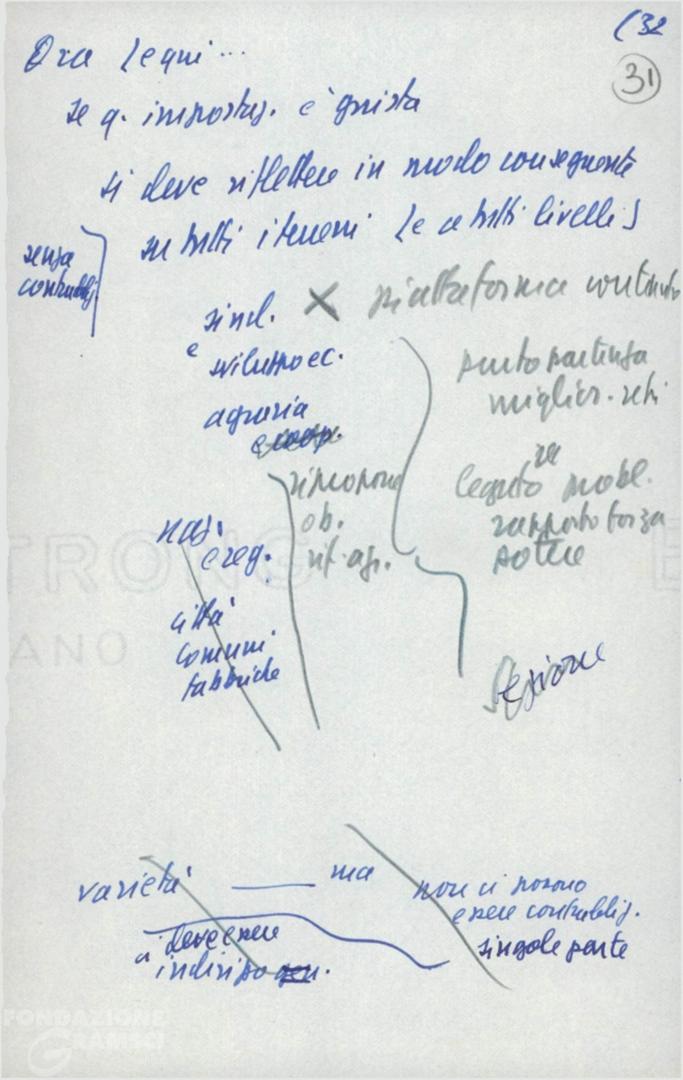 (32
31
Ora segni...
se q. impostaz. è giusta
si deve riflettere in modo conseguente
su tutti i terreni (e a tutti livelli)
senza
contraddiz.
sind. X piattaforma contenuto
e sviluppo ec.
agraria
e coop.
punto partenza
miglior.
se
legato mobil.
rapporto forza
potere
ripropone
ob.
rif. agr.
naz.
e reg.
città
comuni
fabbriche
Sezione
varietà — ma
non ci possono
essere contraddiz.
singole parte
deve essere
indirizzo gen.
FONDAZIONE
GRAMSCI